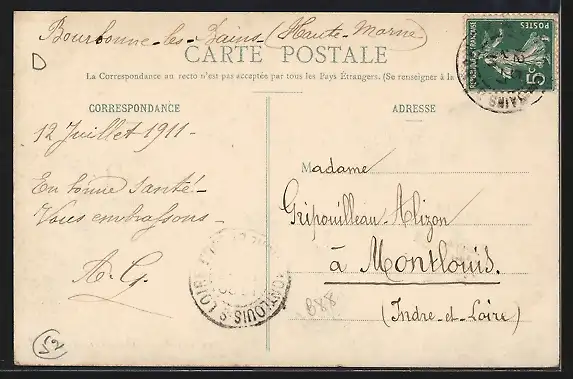 Bourbonne-les-Bains (Haute-Marne)
CARTE POSTALE
La Correspondance au recto n'est pas acceptée par tous les Pays Étrangers. (Se renseigner à la
CORRESPONDANCE
ADRESSE
12 Juillet 1911 -
En bonne santé -
Vous embrassons -
A. G.
Madame
Gripouilleau-Alizon
à Montlouis.
(Indre-et-Loire)
POSTES
5
MONTLOUIS-S-LOIRE
888
52